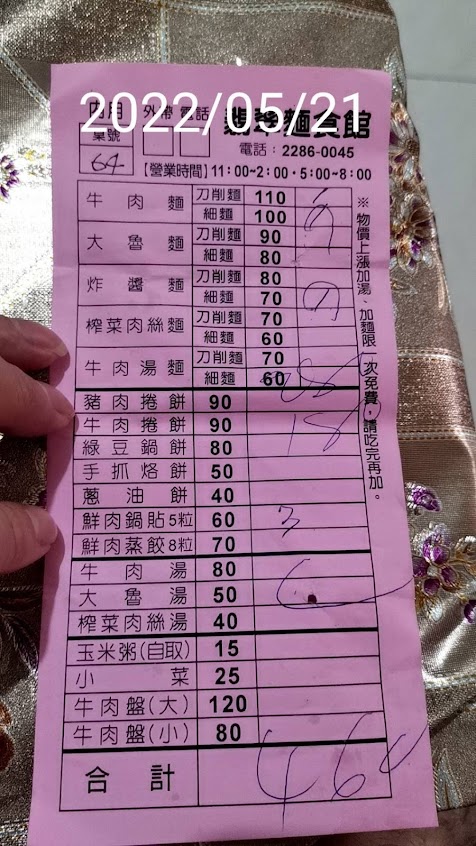 2022/05/21
內用 外帶 電話
麵食館
桌號
64
電話：2286-0045
【營業時間】11：00~2：00・5：00~8：00
牛肉麵 刀削麵 110
細麵 100
大魯麵 刀削麵 90
細麵 80
炸醬麵 刀削麵 80
細麵 70
榨菜肉絲麵 刀削麵 70
細麵 60
牛肉湯麵 刀削麵 70
細麵 60
豬肉捲餅 90
牛肉捲餅 90
綠豆鍋餅 80
手抓烙餅 50
蔥油餅 40
鮮肉鍋貼5粒 60 3
鮮肉蒸餃8粒 70
牛肉湯 80
大魯湯 50
榨菜肉絲湯 40
玉米粥(自取) 15
小菜 25
牛肉盤(大) 120
牛肉盤(小) 80
合計 460
※物價上漲加湯、加麵限一次免費，請吃完再加。